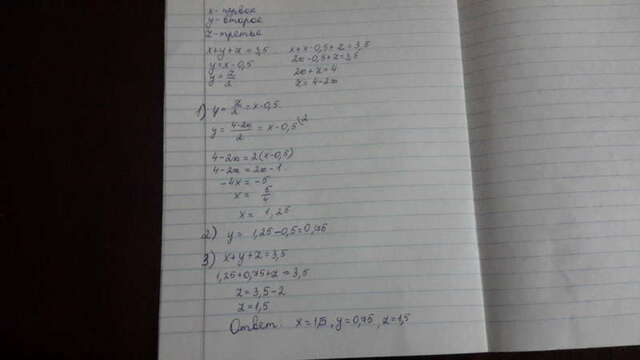 x - первое
y - второе
z - третье
x+y+z=3,5 x+x-0,5+z=3,5
y=x-0,5 2x-0,5+z=3,5
y=z/2 2x+z=4
z=4-2x
1) y=z/2=x-0,5
y=(4-2x)/2=x-0,5 |2
4-2x=2(x-0,5)
4-2x=2x-1
-4x=-5
x=5/4
x=1,25
2) y=1,25-0,5=0,75
3) x+y+z=3,5
1,25+0,75+z=3,5
z=3,5-2
z=1,5
Ответ: x=1,5, y=0,75, z=1,5